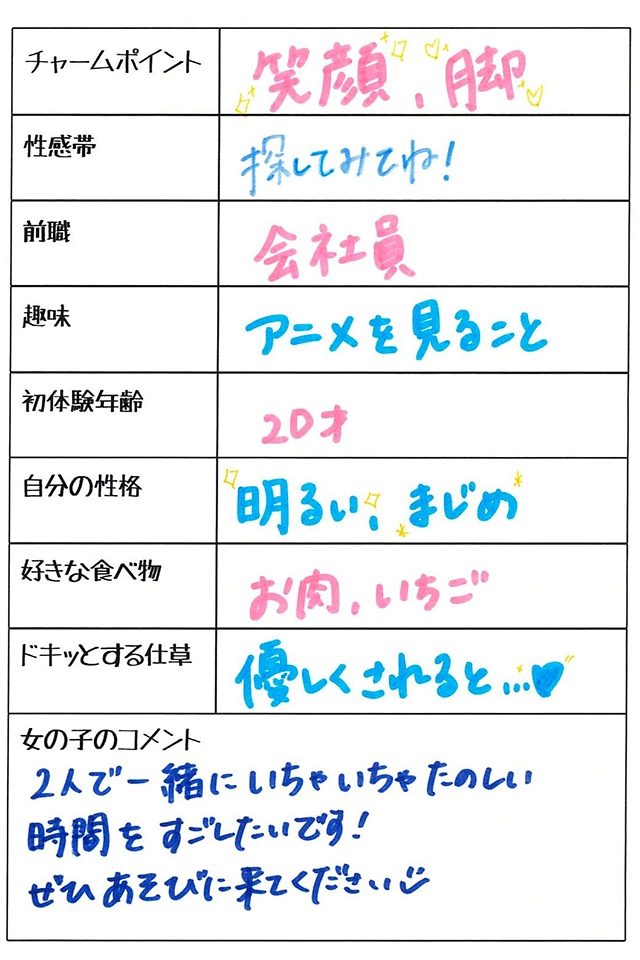 チャームポイント 笑顔、脚
性感帯 探してみてね!
前職 会社員
趣味 アニメを見ること
初体験年齢 20才
自分の性格 明るい、まじめ
好きな食べ物 お肉、いちご
ドキッとする仕草 優しくされると…
女の子のコメント
2人で一緒にいちゃいちゃたのしい
時間をすごしたいです!
ぜひあそびに来てください